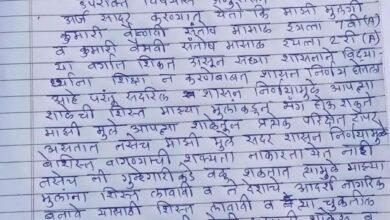 उपरोक्त विषयान्वये
अर्ज सादर करण्यात येतो कि माझी मुलगी
कुमारी वैष्णवी संतोष मासाळ इयत्ता 7 वी (A)
व कुमारी वैभवी संतोष मासाळ इयत्ता 2 री (A)
या वर्गात शिकत असून सध्या शासनाने विद्या-
र्थ्यांना शिक्षा न करणेबाबत शासन निर्णय घेतला
आहे परंतु सदरिल शासन निर्णयामुळे आपल्या
शाळेची शिस्त माझ्या मुलाकडून भंग होऊ शकते
माझी मुले आपल्या शाळेतून प्रत्येक परिक्षेत टॉपर
असतात तसेच माझी मुले सदर शासन निर्णयामुळे
बेशिस्त वागण्याची शक्यता नाकारता येत नाही
तसेच ती गुन्हेगारीकडे वळू शकतात त्यामुळे माझ्या
मुलांना शिस्त लावावी व ते देशाचे आदर्श नागरिक
बनावे यासाठी शिस्त लावावी व चुकील